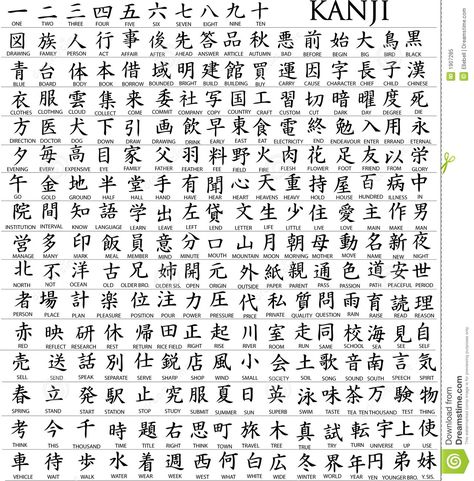 一 二 三 四 五 六 七 八 九 十 KANJI
ONE TWO THREE FOUR FIVE SIX SEVEN EIGHT NINE TEN
図 族 人 行 事 後 先 答 品 秋 悪 前 始 大 鳥 黒
DRAWING FAMILY PERSON ACT AFFAIR AFTER AHEAD ANSWER ARTICLE AUTUMN BAD BEFORE BEGIN BIG BIRD BLACK
青 台 体 本 借 域 明 建 館 買 運 因 字 長 子 漢
BLUE BOARD BODY BOOK BORROW BOUNDED BRIGHT BUILD BUILDING BUY CARRY CAUSE CHARACTER CHIEF CHILD CHINESE
衣 服 雲 集 来 委 社 写 国 工 習 切 暗 曜 度 死
CLOTHES CLOTHING CLOUD COLLECT COME COMMIT COMPANY COPY COUNTRY CRAFT CUSTOM CUT DARK DAY DEGREE DIE
方 医 犬 下 引 画 飲 早 東 食 電 終 勉 入 用 永
DIRECTION DOCTOR DOG DOWN DRAW DRAWING DRINK EARLY EAST EAT ELECTRICITY END ENDEAVOUR ENTER ERRAND ETERNAL
夕 毎 高 目 家 父 羽 料 野 火 肉 花 足 友 以 栄
EVENING EVERY EXPENSIVE EYE FAMILY FATHER FEATHER FEE FIELD FIRE FLESH FLOWER FOOT FRIEND FROM GLORY
午 金 地 半 堂 手 有 聞 心 天 重 持 屋 百 病 中
GO GOLD GROUND HALF HALL HAND HAVE HEAR HEART HEAVEN HEAVY HOLD HOUSE HUNDRED ILLNESS IN
院 間 知 語 学 出 左 文 生 少 住 愛 主 作 男
INSTITUTION INTERVAL KNOW LANGUAGE LEARN LEAVE LEFT LEND LETTER LIFE LITTLE LIVE LOVE MAIN MAKE MAN
営 多 印 飯 員 意 分 口 山 月 朝 母 動 名 新 夜
MANAGE MANY MARK MEAL MEMBER MIND MINUTE MOUTH MOUNTAIN MOON MORNING MOTHER MOVE NAME NEW NIGHT
北 不 洋 古 兄 姉 開 外 紙 親 通 色 道 安 世
NORTH NOT OCEAN OLD OLDER BRO. OLDER SIS. OPEN ORIGIN OUTSIDE PAPER PARENT PASS PATH PEACEFUL PERIOD
者 場 計 楽 位 注 力 圧 代 私 質 問 雨 育 読 理
PERSON PLACE PLAN PLEASURE POSITION POUR POWER PRESSURE PRIVATE QUALITY QUESTION RAIN RAISE READ REASON
赤 映 研 休 帰 田 正 起 川 室 走 同 校 海 見 自
RED REFLECT RESEARCH REST RETURN RICE FIELD RIGHT RISE RIVER ROOM RUN SAME SCHOOL SEA SEE SELF
売 送 話 別 仕 鋭 店 風 小 会 土 歌 音 南 言 気
SELL SEND SPEAK SEPARATE SERVE SHARP SHOP WIND SMALL SOCIETY SOIL SONG SOUND SOUTH SPEECH SPIRIT
春 立 発 駅 止 究 夏 日 英 泳 味 茶 万 験 物
SPRING STAND START STATION STOP STUDY SUMMER SUN SUPERB SWIM TASTE TEA TEN THOUSAND TEST THING
考 今 千 時 題 右 思 町 旅 木 真 試 転 宇 上 使
THINK THIS THOUSAND TIME TITLE RIGHT THINK TOWN TRAVEL TREE TRUE TRY TURN UNIVERSE UP USE
車 待 歩 水 着 週 西 何 白 広 冬 界 年 円 弟 妹
VEHICLE WAIT WALK WATER WEAR WEEK WEST WHAT WHITE WIDE WINTER WORLD YEAR YEN YOUNGER BRO. Y.SIS.
Download from
Dreamstime.com